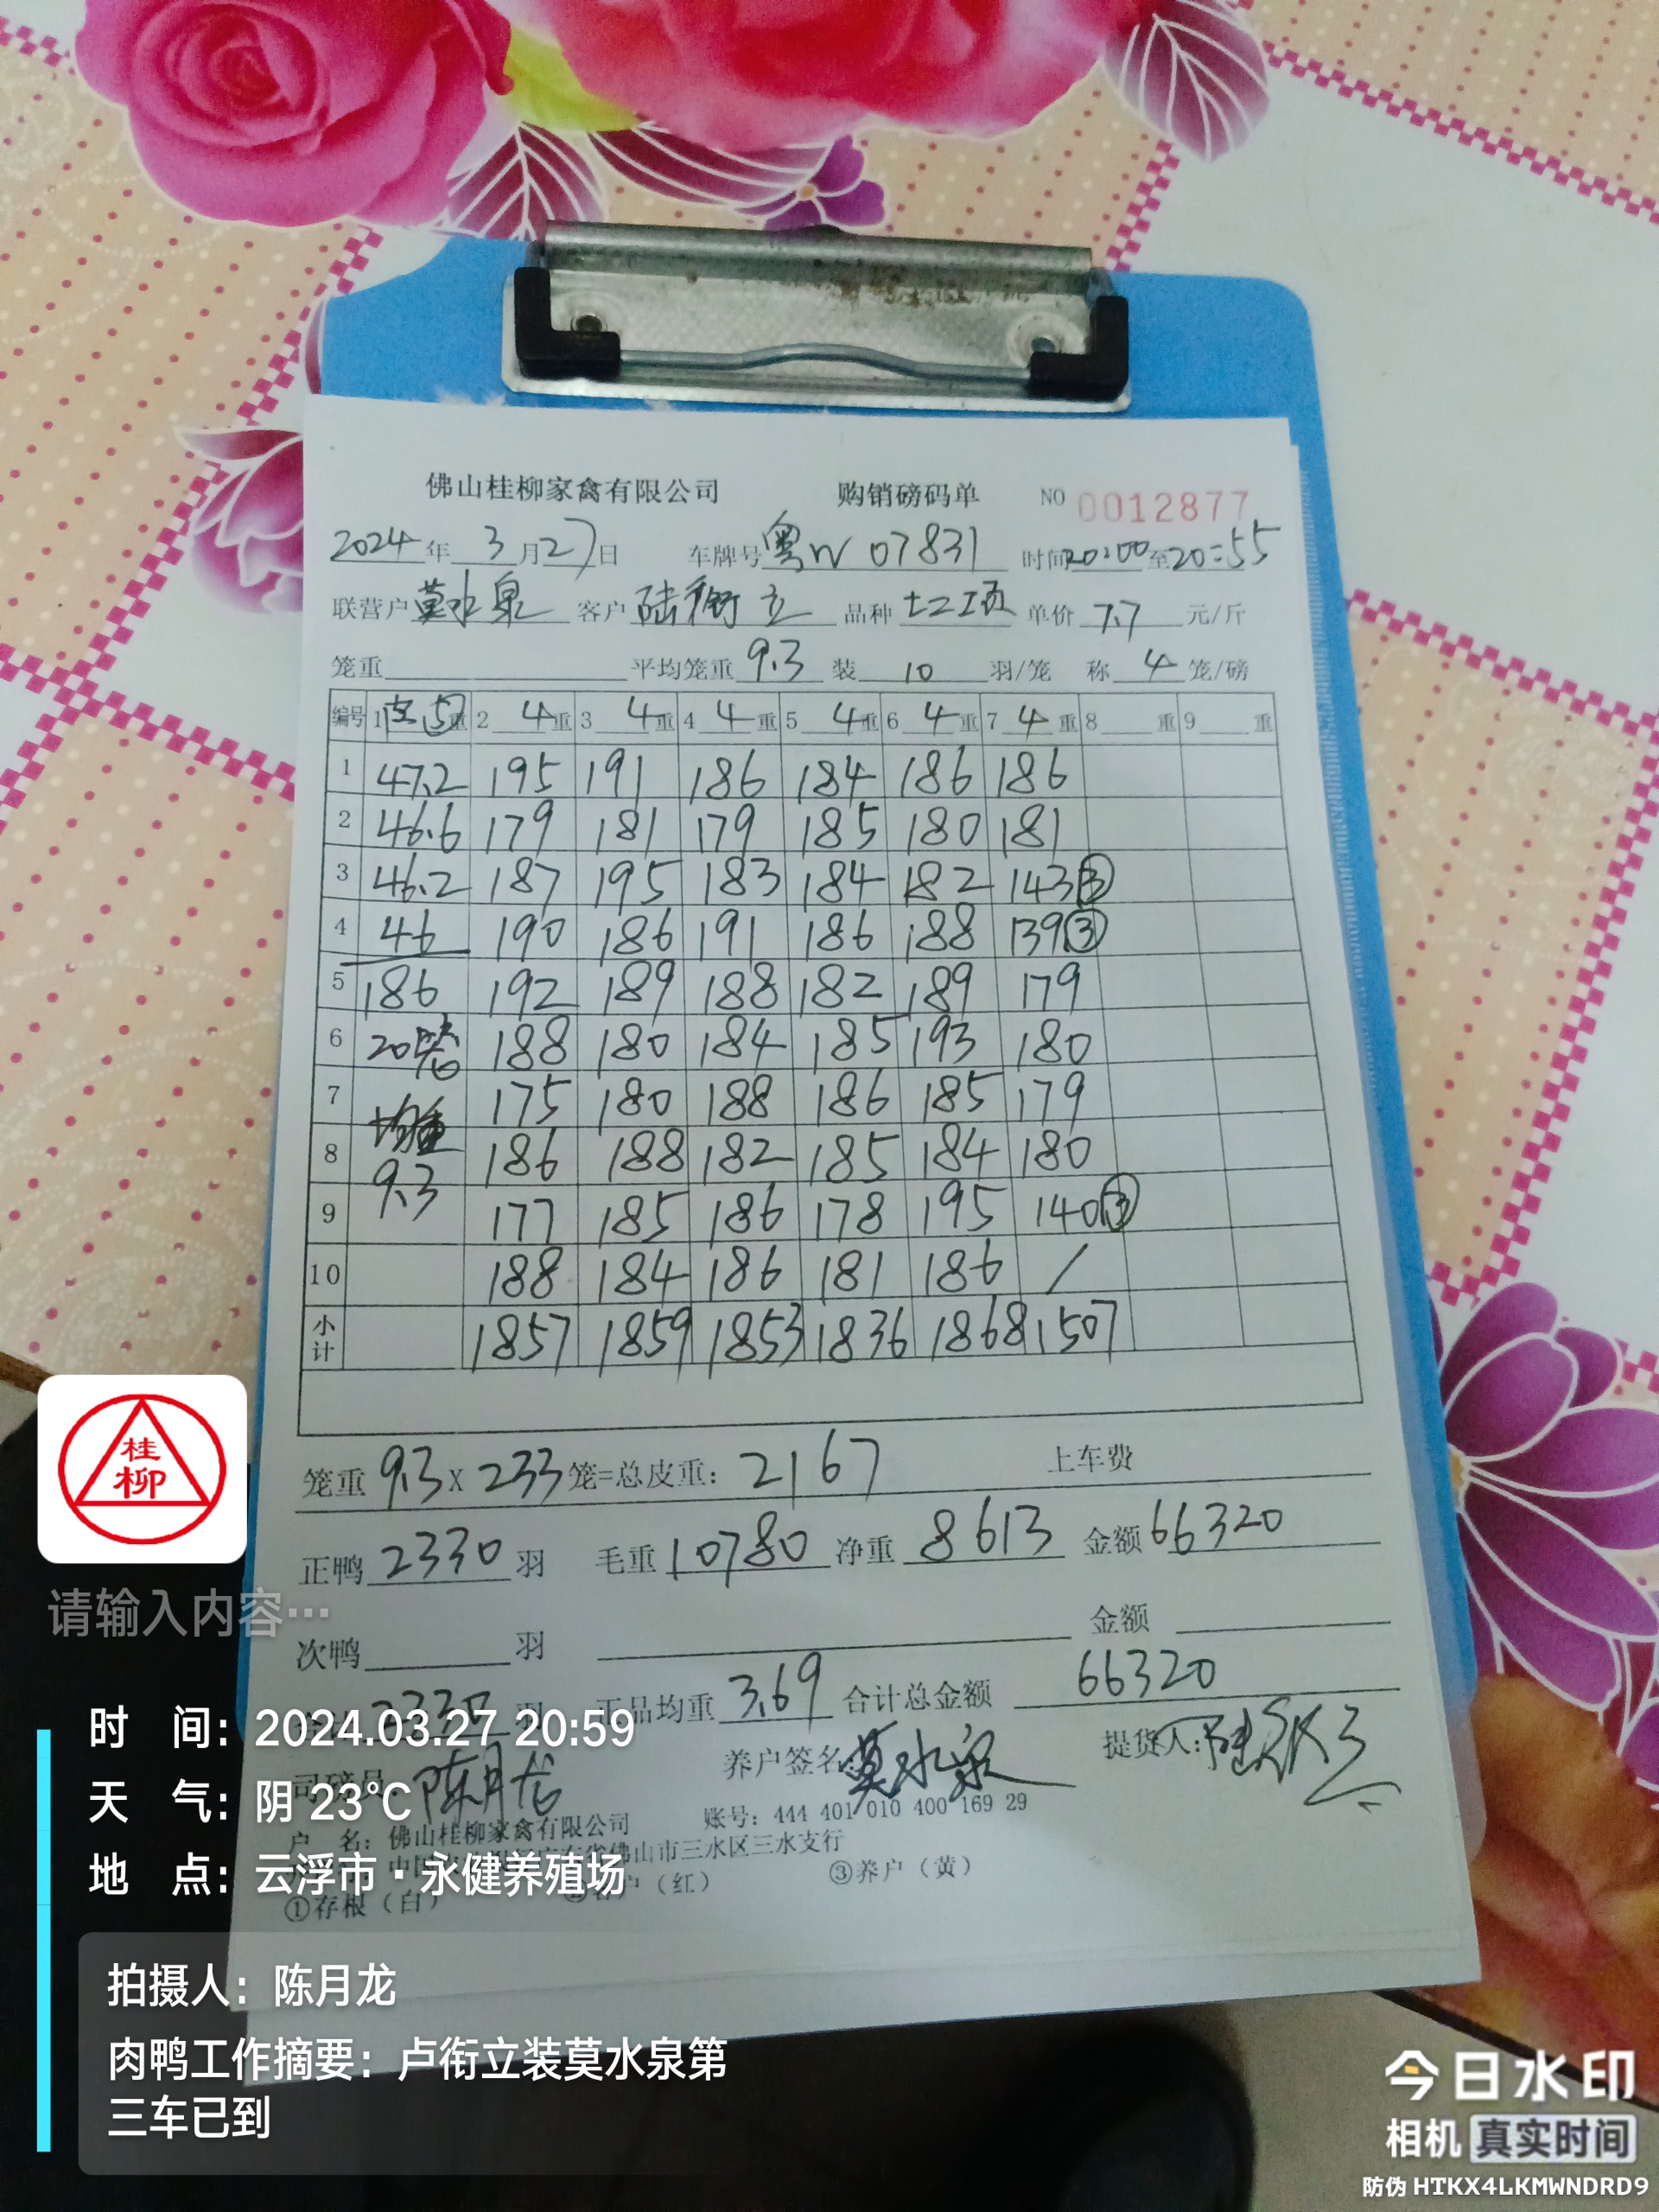 佛山桂柳家禽有限公司 购销磅码单 NO 0012877
2024年 3月27日 车牌号 粤W 07831 时间20:00至20:55
联营户 莫水泉 客户 陆衔立 品种 单价 7.7 元/斤
笼重 平均笼重 9.3 装 10 羽/笼 称 4 笼/磅
编号 1 ⑤重 2 4重 3 4重 4 4重 5 4重 6 4重 7 4重 8 重 9 重
1 47.2 195 191 186 184 186 186
2 46.6 179 181 179 185 180 181
3 46.2 187 195 183 184 182 143③
4 46 190 186 191 186 188 139③
5 186 192 189 188 182 189 179
6 20笼 188 180 184 185 193 180
7 均重 175 180 188 186 185 179
8 9.3 186 188 182 185 184 180
9 177 185 186 178 195 140③
10 188 184 186 181 186 /
小计 1857 1859 1853 1836 1868 1507
笼重 9.3 X 233 笼=总皮重: 2167 上车费
正鸭 2330 羽 毛重 10780 净重 8613 金额 66320
次鸭 羽 金额
2330 羽 正品均重 3.69 合计总金额 66320
司磅员: 陈月龙 养户签名: 莫水泉 提货人: 陆衔立
户 名: 佛山桂柳家禽有限公司 账号: 444 401 010 400 169 29
佛山市三水区三水支行
①存根（白） （红） ③养户（黄）
桂
柳
请输入内容…
时 间: 2024.03.27 20:59
天 气: 阴 23℃
地 点: 云浮市·永健养殖场
拍摄人: 陈月龙
肉鸭工作摘要: 卢衔立装莫水泉第
三车已到
今日水印
相机 真实时间
防伪 HTKX4LKMWNDRD9